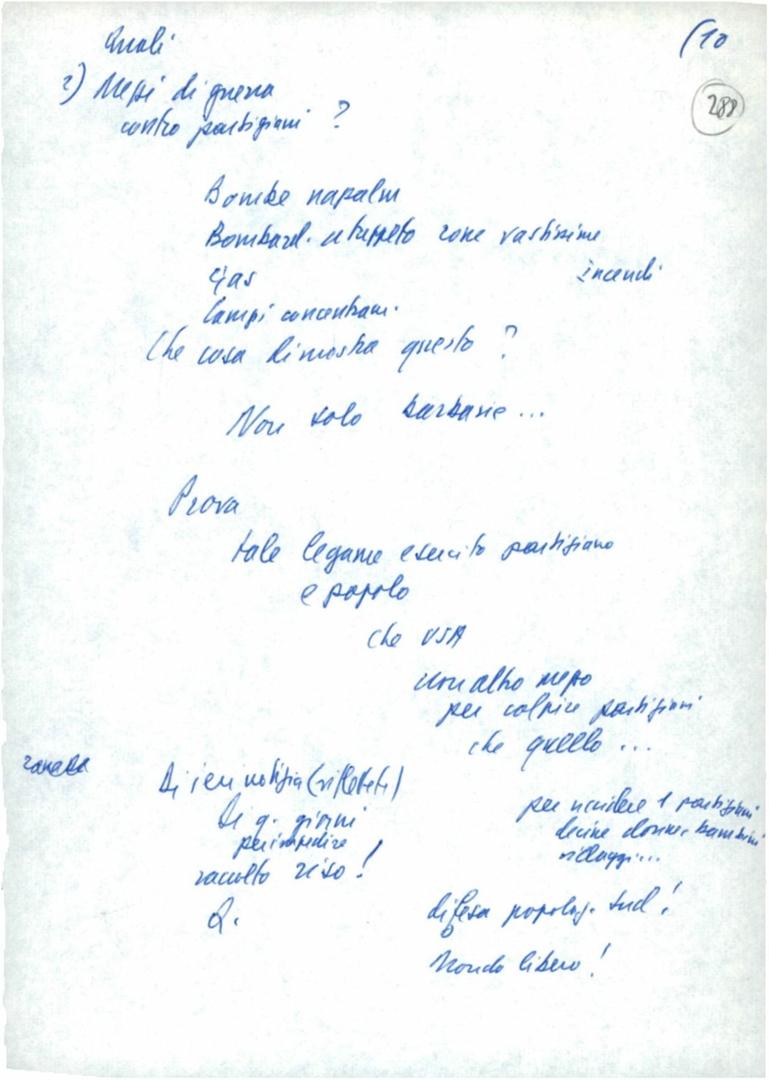 (10
288
Quali
2) Mezzi di guerra
contro partigiani ?
Bombe napalm
Bombard. a tappeto zone vastissime
incendi
Gas
Campi concentram.
Che cosa dimostra questo ?
Non solo barbarie...
Prova
tale legame esercito partigiano
e popolo
che USA
non altro mezzo
per colpire partigiani
che quello ...
per uccidere 1 partigiani
decine donne, bambini
villaggi...
difesa popolaz. Sud !
Mondo libero !
Di ieri notizia (riflettete)
Di q. giorni
per impedire
raccolto riso !
Q.